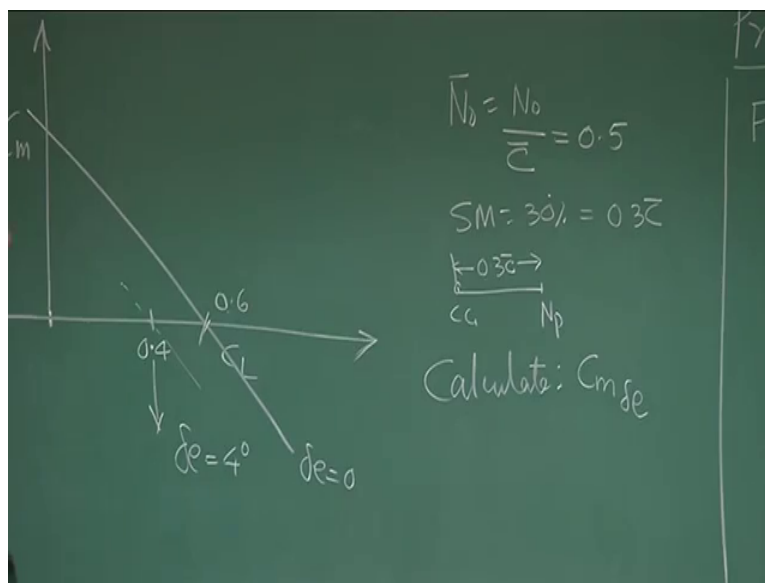 Cm
0.6
0.4
CL
δe=4°
δe=0
N̄0 = N0 / C̄ = 0.5
SM = 30% = 0.3C̄
0.3C̄
CG Np
Calculate: Cmδe